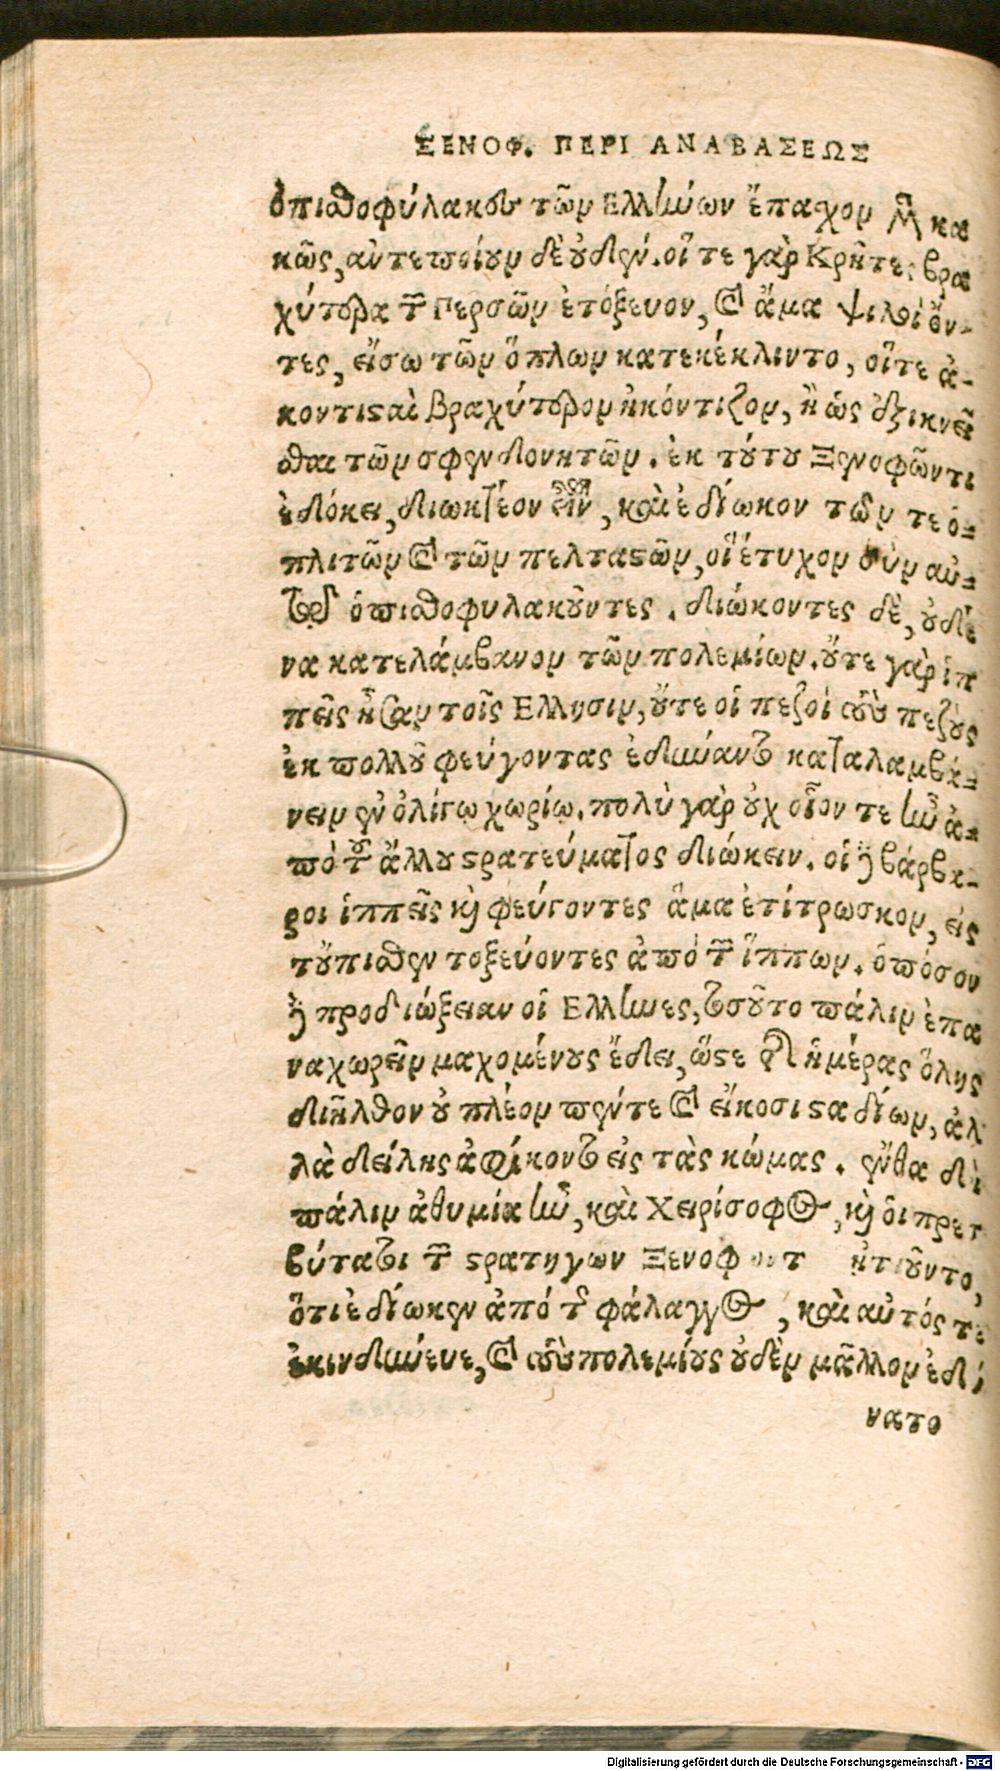 ΞΕΝΟΦ. ΠΕΡΙ ΑΝΑΒΑΣΕΩΣ
ὀπισθοφύλακες τῶν Ελλήνων ἔπασχον μὲν κα
κῶς, ἀντεποίουν δὲ οὐδέν. οἵ τε γὰρ Κρῆτες βρα
χύτερα τῶν Περσῶν ἐτόξευον, καὶ ἅμα ψιλοὶ ὄν-
τες, εἴσω τῶν ὅπλων κατεκέκλιντο, οἵτε ἀ-
κοντισταὶ βραχύτερον ἠκόντιζον, ἢ ὡς ἐξικνεῖ
σθαι τῶν σφενδονητῶν. ἐκ τούτου Ξενοφῶντι
ἐδόκει, διωκτέον εἶναι, καὶ ἐδίωκον τῶν τε ὁ-
πλιτῶν καὶ τῶν πελταστῶν, οἳ ἔτυχον σὺν αὐ-
τῷ ὀπισθοφυλακοῦντες. διώκοντες δὲ, οὐδέ
να κατελάμβανον τῶν πολεμίων. οὔτε γὰρ ἱπ
πεῖς ἦσαν τοῖς Ελλησιν, οὔτε οἱ πεζοὶ τοὺς πεζοὺς
ἐκ πολλοῦ φεύγοντας ἐδύναντο καταλαμβά-
νειν ἐν ὀλίγῳ χωρίῳ. πολὺ γὰρ οὐχ οἷον τε ἦν ἀ-
πὸ τοῦ ἄλλου στρατεύματος διώκειν. οἱ δὲ βάρβα-
ροι ἱππεῖς καὶ φεύγοντες ἅμα ἐτίτρωσκον, εἰς
τοὔπισθεν τοξεύοντες ἀπὸ τῶν ἵππων. ὁπόσον
δὲ προδιώξειαν οἱ Ελληνες, τοσοῦτο πάλιν ἐπα
ναχωρεῖν μαχομένους ἔδει, ὥστε τῆς ἡμέρας ὅλης
διῆλθον οὐ πλέον πέντε καὶ εἴκοσι σταδίων, ἀλ
λὰ δείλης ἀφίκοντο εἰς τὰς κώμας. ἔνθα δὴ
πάλιν ἀθυμία ἦν, καὶ Χειρίσοφος, καὶ οἱ πρεσ
βύτατοι τῶν στρατηγῶν ᾐτιοῦντο,
ὅτι ἐδίωκεν ἀπό τῆς φάλαγγος, καὶ αὐτός τε
ἐκινδύνευε, καὶ τοὺς πολεμίους οὐδὲν μᾶλλον ἐδύ
νατο
Digitalisierung gefördert durch die Deutsche Forschungsgemeinschaft - DFG